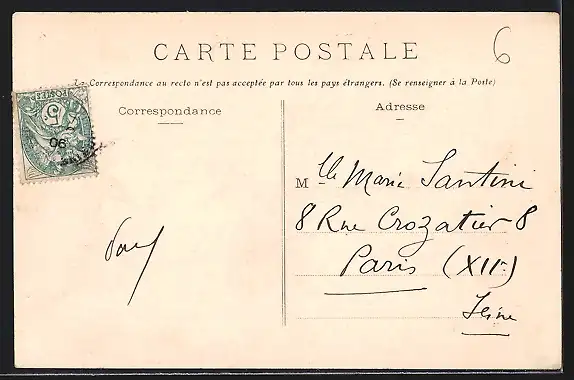 CARTE POSTALE
6
La Correspondance au recto n'est pas acceptée par tous les pays étrangers. (Se renseigner à la Poste)
Correspondance
Adresse
POSTES
5
06
Mlle Marie Santini
8 Rue Crozatier 8
Paris (XIIe)
Seine